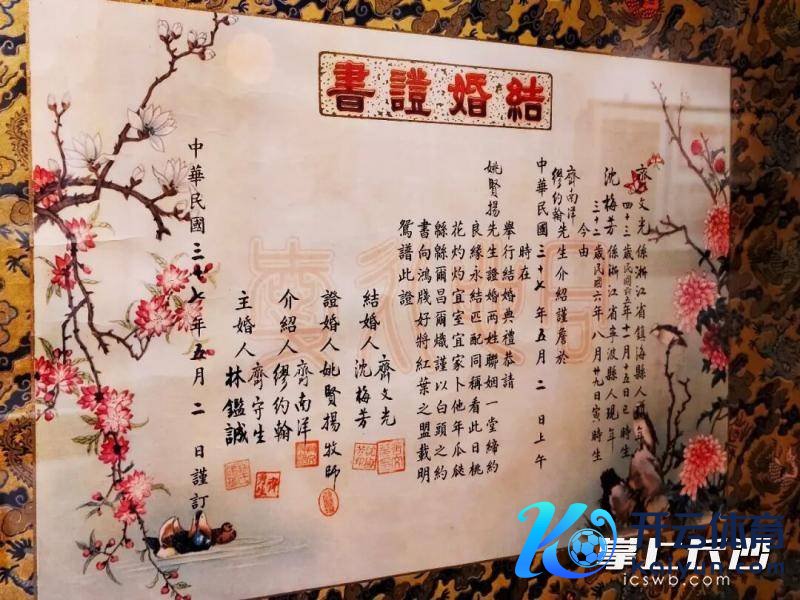 結婚證書
齊文光係浙江省鎮海縣人現年
四十三歲民國前五年十一月十五日巳時生
沈梅芳係浙江省寧波縣人現年
三十二歲民國六年八月廿九日寅時生
今由
齊南洋
繆約翰先生介紹謹詹於
中華民國三十七年五月二日上午
時在
舉行結婚典禮恭請
姚賢揚先生證婚兩姓聯姻一堂締約
良緣永結匹配同稱看此日桃
花灼灼宜室宜家卜他年瓜瓞
緜緜爾昌爾熾謹以白頭之約
書向鴻牋好將紅葉之盟載明
鴛譜此證
結婚人 齊文光
沈梅芳
證婚人 姚賢揚牧師
介紹人 齊南洋
繆約翰
主婚人 齊守生
林鑑誠
中華民國三十七年五月二日謹訂
开云体育
掌上长沙
icswb.com